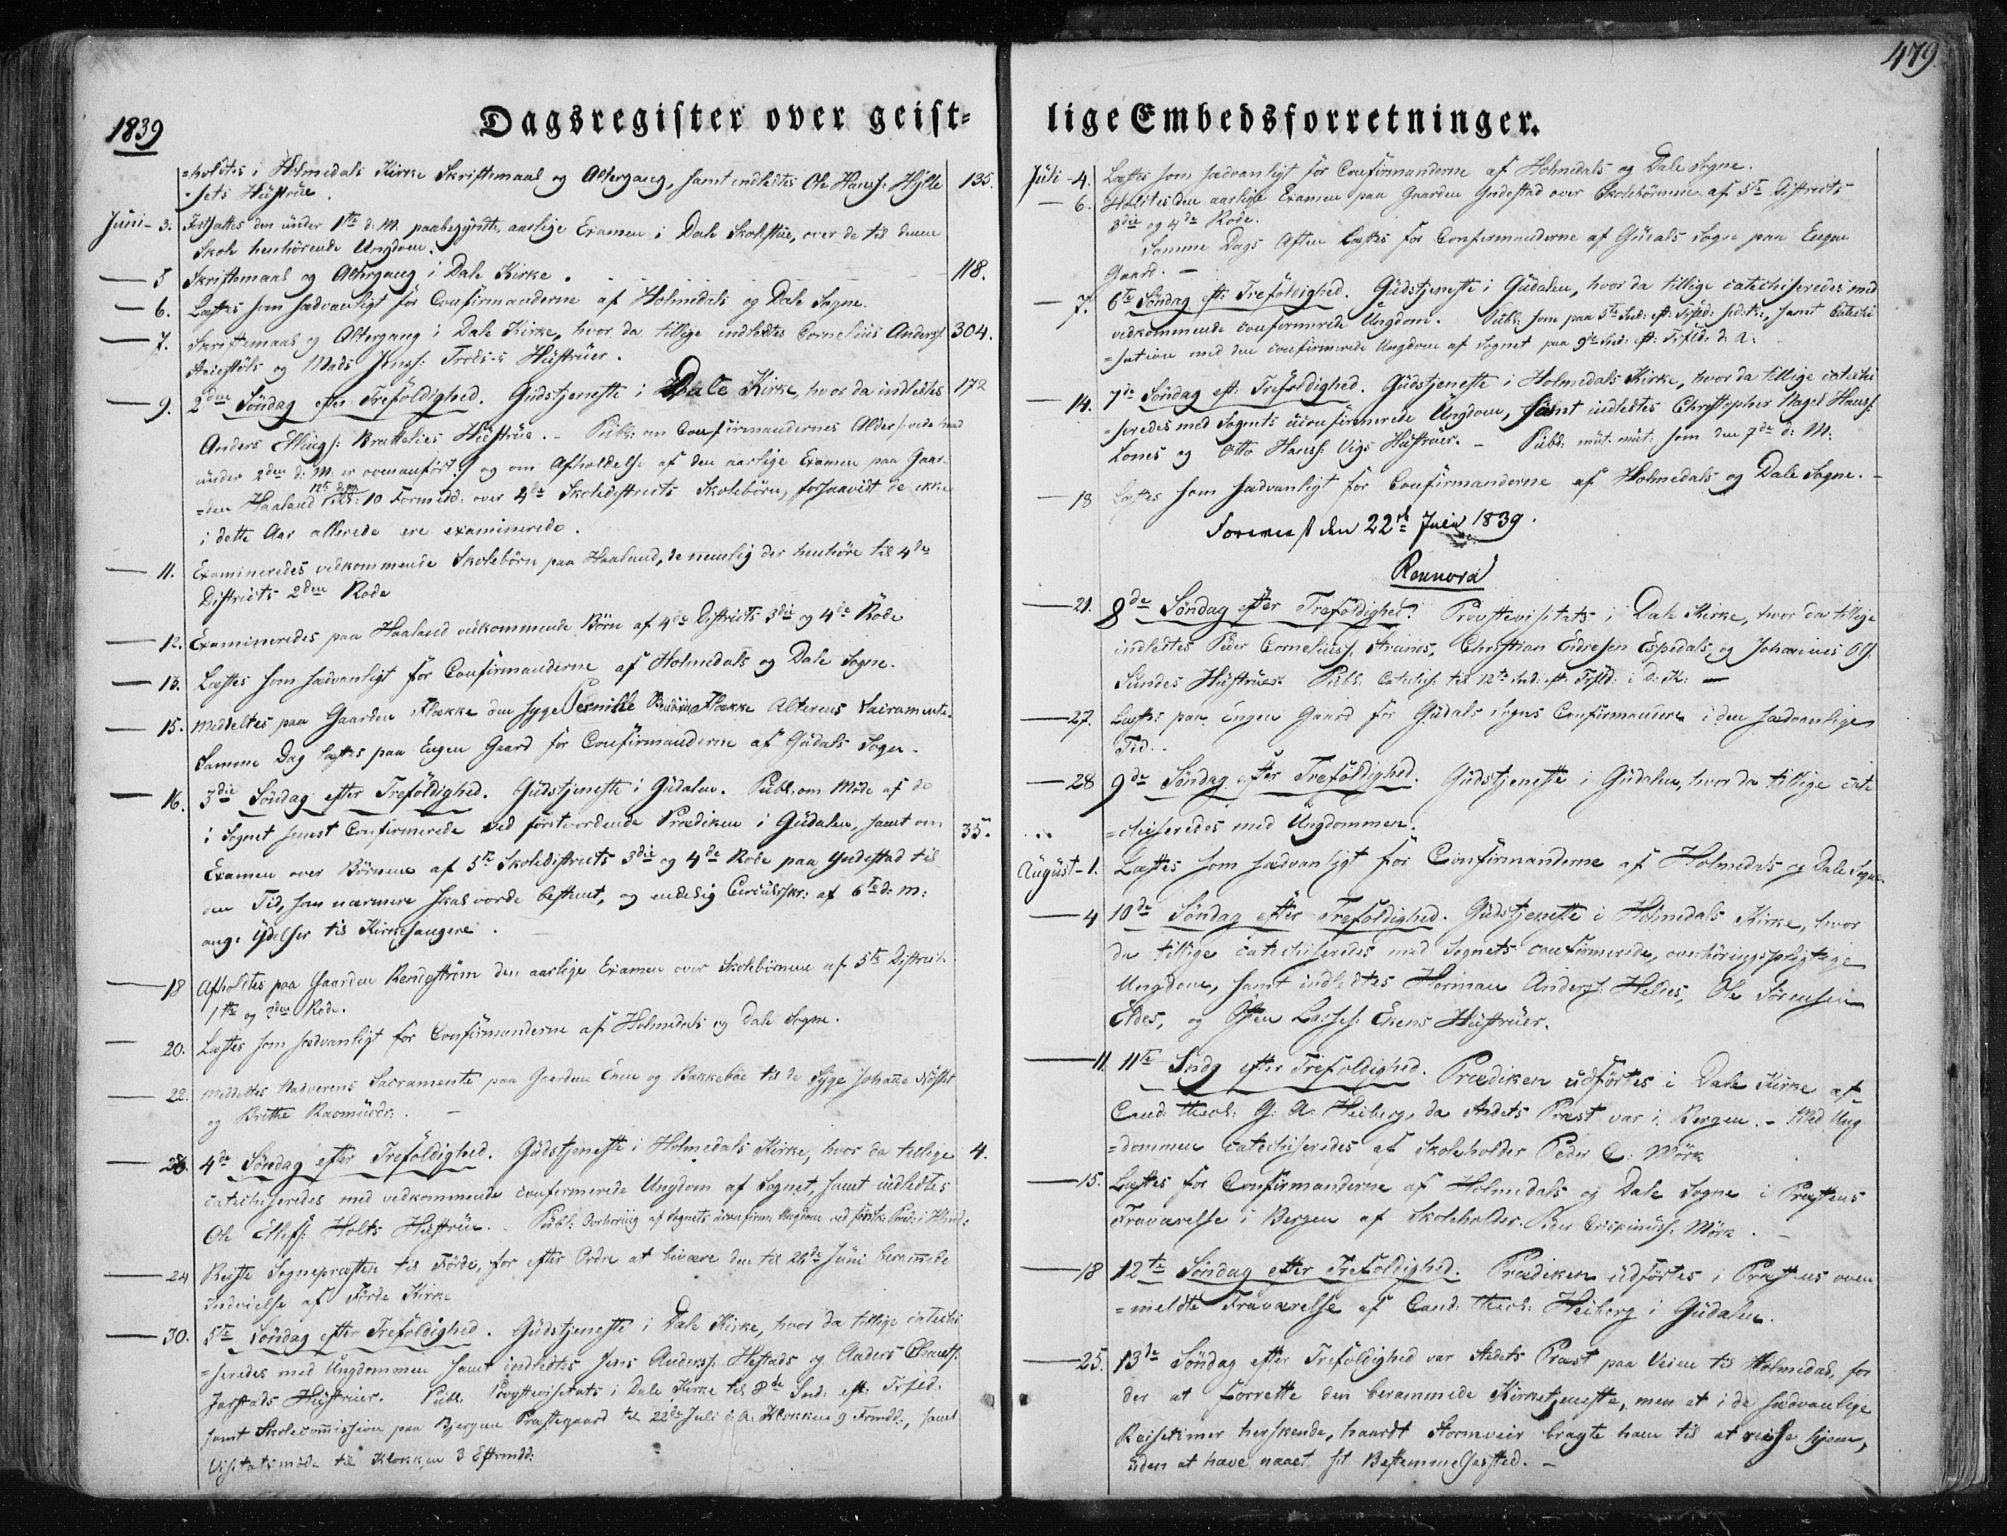 479.
1839
Dagsregister over geist-
lige Embedsforretninger.
=holdtes i Holmedals Kirke Skriftemaal og Altergang, samt indledtes Ole Hanss: Hjlle 135.
=sets Hüstrüe.
Jüni - 3. Fortsattes den ünder 1ste d: M. paabegyndte aarlige Examen i Dale Skolstue, over de til denne
Skole henhörende Ungdom.
5 Skriftemaal og Altergang i Dale Kirke. 118.
6. Læstes som sædvanligt för Confirmanderne af Holmedals og Dale Sogne.
7. Skriftemaal og Altergang i Dale Kirke, hvor da tillige indledtes Cornelius Anderss: 304.
og Mads Jenss: Hüstrüer.
9. 2den Söndag efter Treföldighed. Güdstjeneste i Dale Kirke, hvor da indledtes 172
Anders Ellings: Hüstrüe. - Publ: om Confirmandernes Alder
ünder 2den d: M: er ovenanfört) og om Afholdelse af den aarlige Examen paa Gaar-
=den Haaland 12te dM: Kl: 10 Formidd: over 4de Skoledistricts Skolebörn, forsaavidt de ikke
i dette Aar allerede ere examinerede.
11. Examineredes vedkommende Skolebörn paa Haaland, de nemlig der henhöre til 4de
Districts 2den Rode
12. Examineredes paa Haaland vedkommende Börn af 4de Districts 3die og 4de Rode
13. Læstes som sædvanligt för Confirmanderne af Holmedals og Dale Sogne.
15. Meddeltes paa Gaarden Flække den syge Pernille Flække Alterens Sacramente.
Samme Dag læstes paa Engen Gaard for Confirmanderne af Güdals Sogn.
16. 3die Söndag efter Treföldighed. Güdstjeneste i Güdalen. Publ: om Möde af de
i Sognet senest Confirmerede ved förstvordende Prædiken i Güdalen, samt om 35.
Examen over Börnene af 5te Skoledistricts 3die og 4de Rode paa Yndestad til
den Tid, som nærmere skal vorde bestemt, og endelig Circulskr: af 6te d: M:
ang: Ydelser til Kirkesangere.
18 Afholdtes paa Gaarden Rendeström den aarlige Examen over Skolebörnene af 5te District:
1ste og 2den Rode.
20. Læstes som sædvanligt för Confirmanderne af Holmedals og Dale Sogne.
22. Meddeltes Nadverens Sacramente paa Gaardene Enen og Bakkeböe til de Syge Johanne
og Brithe Rasmüsdr:.
23. 4de Söndag efter Treföldighed. Güdstjeneste i Holmedals Kirke, hvor da tillige 4.
catechiseredes med vedkommende confirmerede Ungdom af Sognet, samt indledtes
Ole Ellefs: Holts Hüstrüe. Publ: Overhöring af Sognets üconfirm: Ungdom ved förste Præd: i Hlmd:
24 Reiste Sognepræsten til Förde, for efter Ordre at bivære den til 26de Jüni berammede
Indvielse af Förde Kirke
30. 5te Söndag efter Treföldighed. Güdstjeneste i Dale Kirke, hvor da tillige catechi
=seredes med Ungdommen samt indledtes Jens Anderss: Hestads og Anders
Jarstads Hüstrüer. Publ: Provstevisitats i Dale Kirke til 8de Snd: eft: Trfld:
samt Skolecommission paa Bjergum Præstegaard til 22de Juli d: A: Klokken 9 Formdd:, samt
Visitatsmöde til Klokken 3 Eftrmdd:
Jüli - 4. Læstes som sædvanligt för Confirmanderne af Holmedals og Dale Sogne.
6. Holdtes den aarlige Examen paa Gaarden Yndestad over Skolebörnene af 5te Districts
3die og 4de Rode.
Samme Dags Aften læstes for Confirmanderne af Güdals Sogn paa Engen
Gaard. -
7. 6te Söndag eft: Treföldighed. Güdstjeneste i Güdalen, hvor da tillige catechiseredes med
vedkommende confirmerede Ungdom. Publ: som paa 5te Snd: eft: Trfld: samt Catechi
=sation med den confirmerede Ungdom af Sognet paa 9de Snd: eft: Trfld: d: A:
14. 7de Söndag eft: Treföldighed. Güdstjeneste i Holmedals Kirke, hvor da tillige catechi
=seredes med Sognets üconfirmerede Ungdom, samt indledtes Christopher Nagel Hanss:
Lones og Otto Hanss: Vigs Hüstrüer. - Publ: müt: müt: som den 7de d: M:
18 Læstes som sædvanligt for Confirmanderne af Holmedals og Dale Sogne. -
Foreviist den 22de Julii 1839.
Rennord
21. 8de Söndag efter Trefoldighed. Provstevisitats i Dale Kirke, hvor da tillige
indledtes Peder Corneliuss: Christian Endresen Espedals, og Johannes Ols:
Sundes Hüstrüer. Publ: Catechis: til 12te Snd: eft: Trfld: i D: K: -
27. Læstes paa Engen Gaard för Güdals Sogns Confirmandere i den sædvanlige
Tid.
28 9de Söndag efter Trefoldighed. Güdstjeneste i Güdalen, hvor da tillige cate
=chiseredes med Ungdommen.
August - 1. Læstes som sædvanligt for Confirmanderne af Holmedals og Dale Sogne.
4 10de Söndag efter Trefoldighed. Güdstjeneste i Holmedals Kirke, hvor
da tillige catechiseredes med Sognets confirmerede, overhöringspligtige
Ungdom, samt indledtes Herman Anderss: Heldes, Ole Sörensen
Eldes, og Sten Lasses: Enens Hüstrüer.
11. 11te Sndg efter Trefoldighed. Prædiken üdförtes i Dale Kirke af
Cand: theol: G: A: Heiberg, da Stedets Præst var i Bergen. - Med Ung
=dommen catechiseredes af Skoleholder Peder C: Mörk
15. Læstes for Confirmanderne af Holmedals og Dale Sogne i Præstens
Fraværelse i Bergen af Skoleholder: Peder Crispinuss: Mörk.
18 12te Söndag efter Trefoldighed. Prædiken üdförtes i Præstens oven
=meldte Fraværelse af Cand: theol: Heiberg i Güdalen.
25. 13de Söndag efter Trefoldighed var Stedets Præst paa Veien til Holmedal, for
der at forrette den berammede Kirketjeneste, men at i de sædvanlige
Reisetimer herskende, haardt Stormveir bragte ham til at reise hjem,
üden at have naaet sit Bestemmelsessted. -